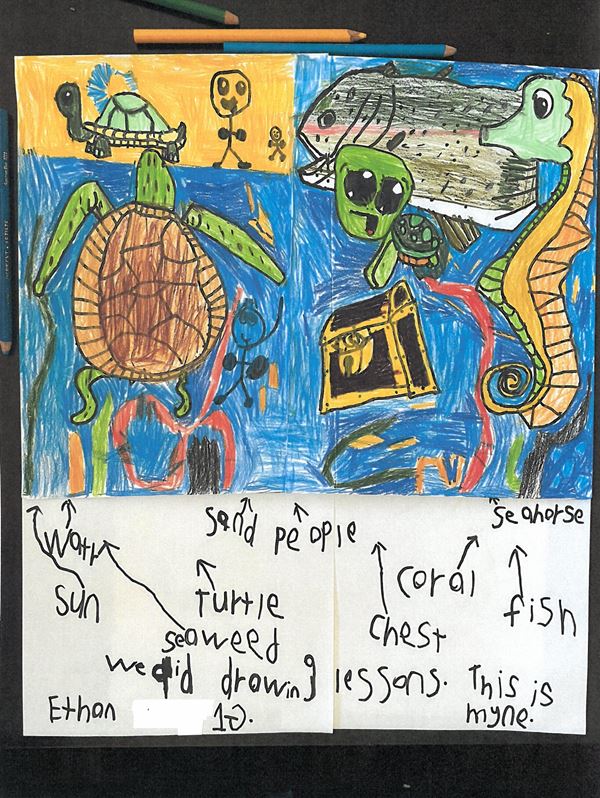 sand people seahorse
watr
sun turtle coral fish
seaweed chest
we did drawing lessons. This is
myne.
Ethan 1J.